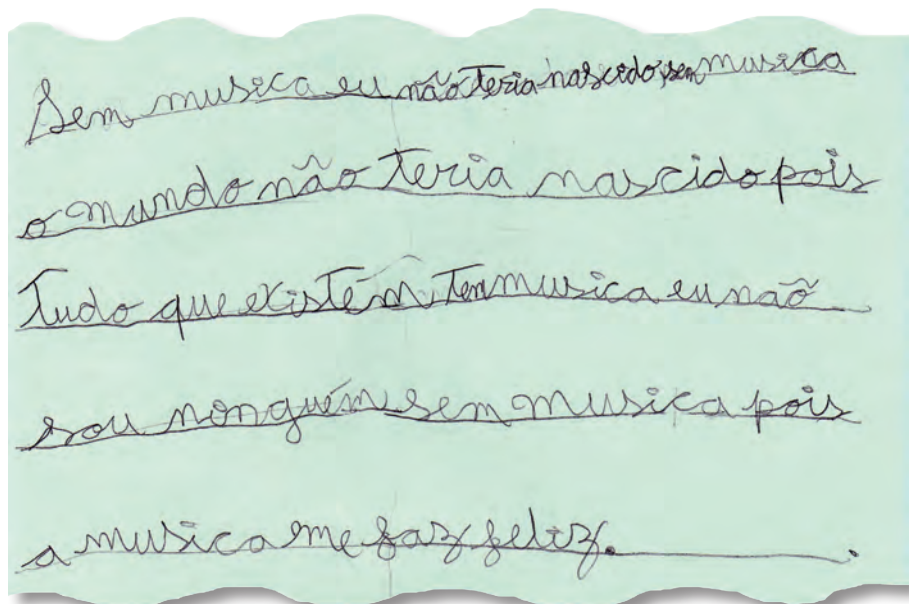 Sem musica eu não teria nascido, sem musica
o mundo não teria nascido pois
Tudo que existém Tem musica eu não
sou nonguém sem musica pois
a musica me faz feliz.